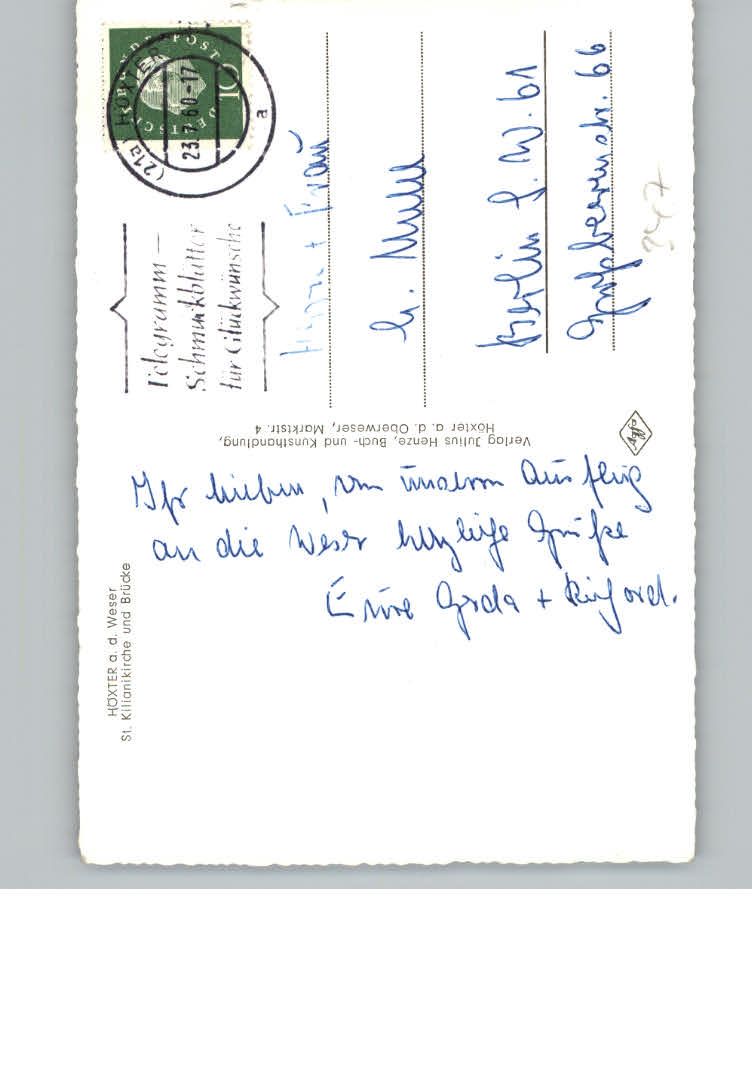 DEUTSCHE BUNDESPOST
10
(21a) HÖXTER
23.7.60-17
a
Telegramm—
Schmuckblätter
für Glückwünsche
Herrn + Frau
G.
Berlin S.W. 61
Großbeerenstr. 66
Verlag Julius Henze, Buch- und Kunsthandlung,
Höxter a. d. Oberweser, Marktstr. 4
Agfa
HÖXTER a. d. Weser
St. Kilianikirche und Brücke
Ihr Lieben, von unserm Ausflug
an die Weser herzliche Grüße
Eure Gerda +